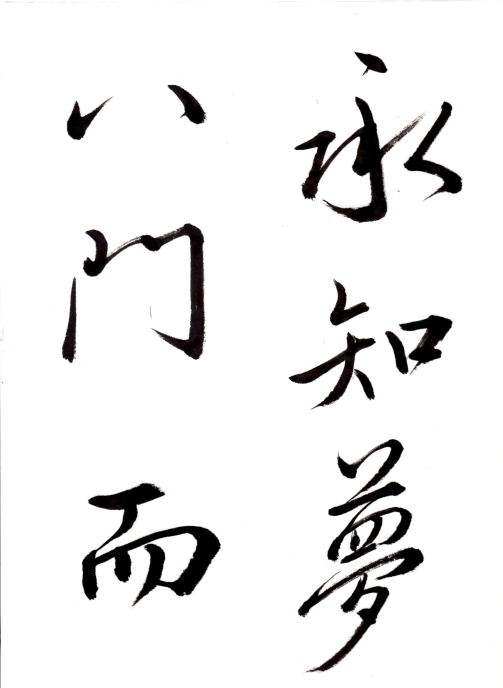 永知夢
八門而